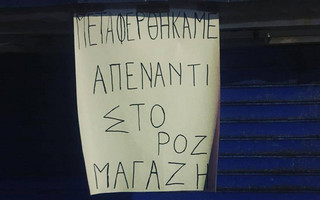 ΜΕΤΑΦΕΡΘΗΚΑΜΕ
ΑΠΕΝΑΝΤΙ
ΣΤΟ
ΡΟΖ
ΜΑΓΑΖΗ